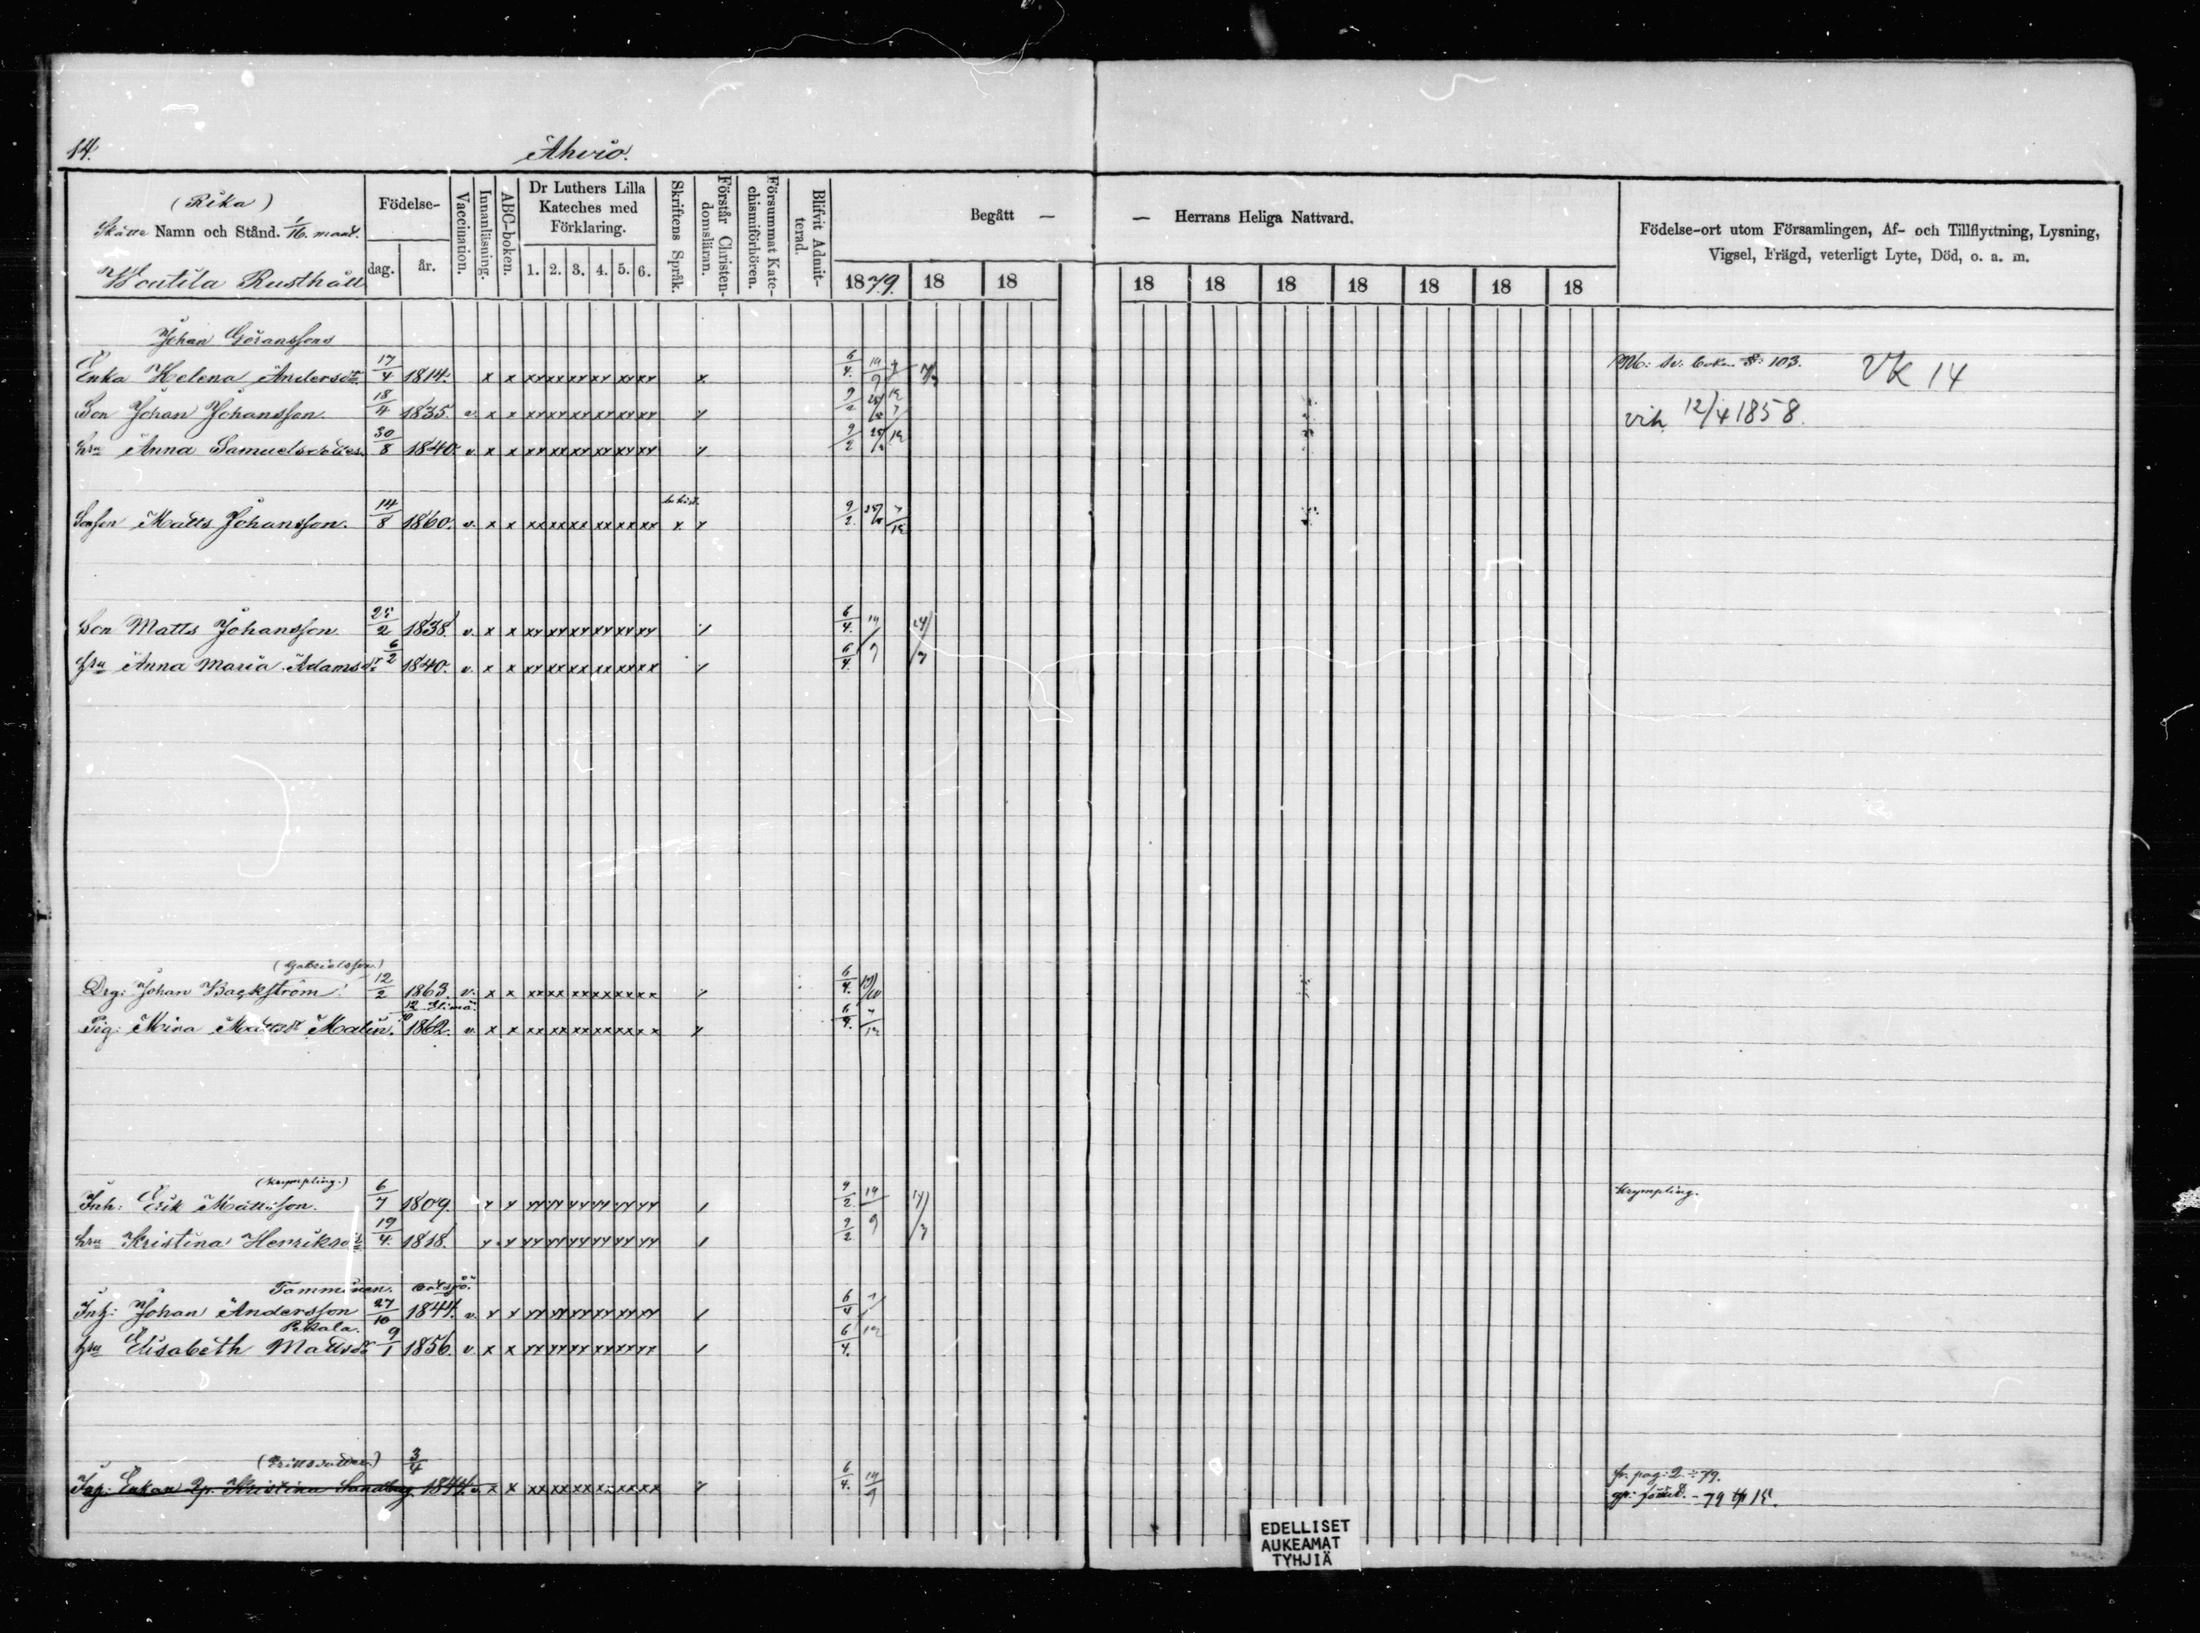 14.
Ahvio.
(Rika)
Skatte Namn och Stånd. 1/16 mant.
Födelse-
dag.
år.
Vaccination.
Innanläsning.
ABC-boken.
Dr Luthers Lilla
Kateches med
Förklaring.
1. 2. 3. 4. 5. 6.
Skriftens Språk.
Förstår Christen-
domsläran.
Försummat Kate-
chismiförhören.
Blifvit Admit-
terad.
Begått —
— Herrans Heliga Nattvard.
1879. 18 18 18 18 18 18 18 18 18
Födelse-ort utom Församlingen, Af- och Tillflyttning, Lysning,
Vigsel, Frägd, veterligt Lyte, Död, o. a. m.
Rusthåll
Johan Göranssons
Enka Helena Andersdr 17/4 1814. x x xx xx xx xx xx xx x 6/4. 19/9 103. VK 14
Son Johan Johansson. 18/4 1835. v. x x xx xx xx xx xx xx 9/2 vih. 12/4 1858.
hru Anna Samuelsdotter. 30/8 1840. v. x x xx xx xx xx xx xx 9/2
Sonson Matts Johansson. 14/8 1860. v. x x xx xx xx xx xx xx x 9/2.
Son Matts Johansson. 25/2 1838. v. x x xx xx xx xx xx xx 6/4. 19/9
hru Anna Maria Adamsdr 6/2 1840. v. x x xx xx xx xx xx xx 6/4.
(Gabrielsson.)
Drg: Johan Backström. 12/2 1863. v. x x xx xx xx xx xx xx 6/4.
Pig: Mina Mattsdr Malin. 1862. v. x x xx xx xx xx xx xx 6/4.
(krympling.)
Inh: Erik Mattsson. 6/7 1809. 9/2 19/9 Krympling.
hru Kristina Henriksdr 19/4. 1818. 9/2
Tamminen.
Inh: Johan Andersson 27/10 1844. v. 6/4
Pekala.
hru Elisabeth Mattsdr 9/1 1856. v. x x 6/4.
3/4
Inh: Enkan Kristina Sandberg 1844. v. x x xx xx xx xx xx xx 6/4. 19/9
fr. pag: 2 - 79.
- 79
EDELLISET
AUKEAMAT
TYHJIÄ